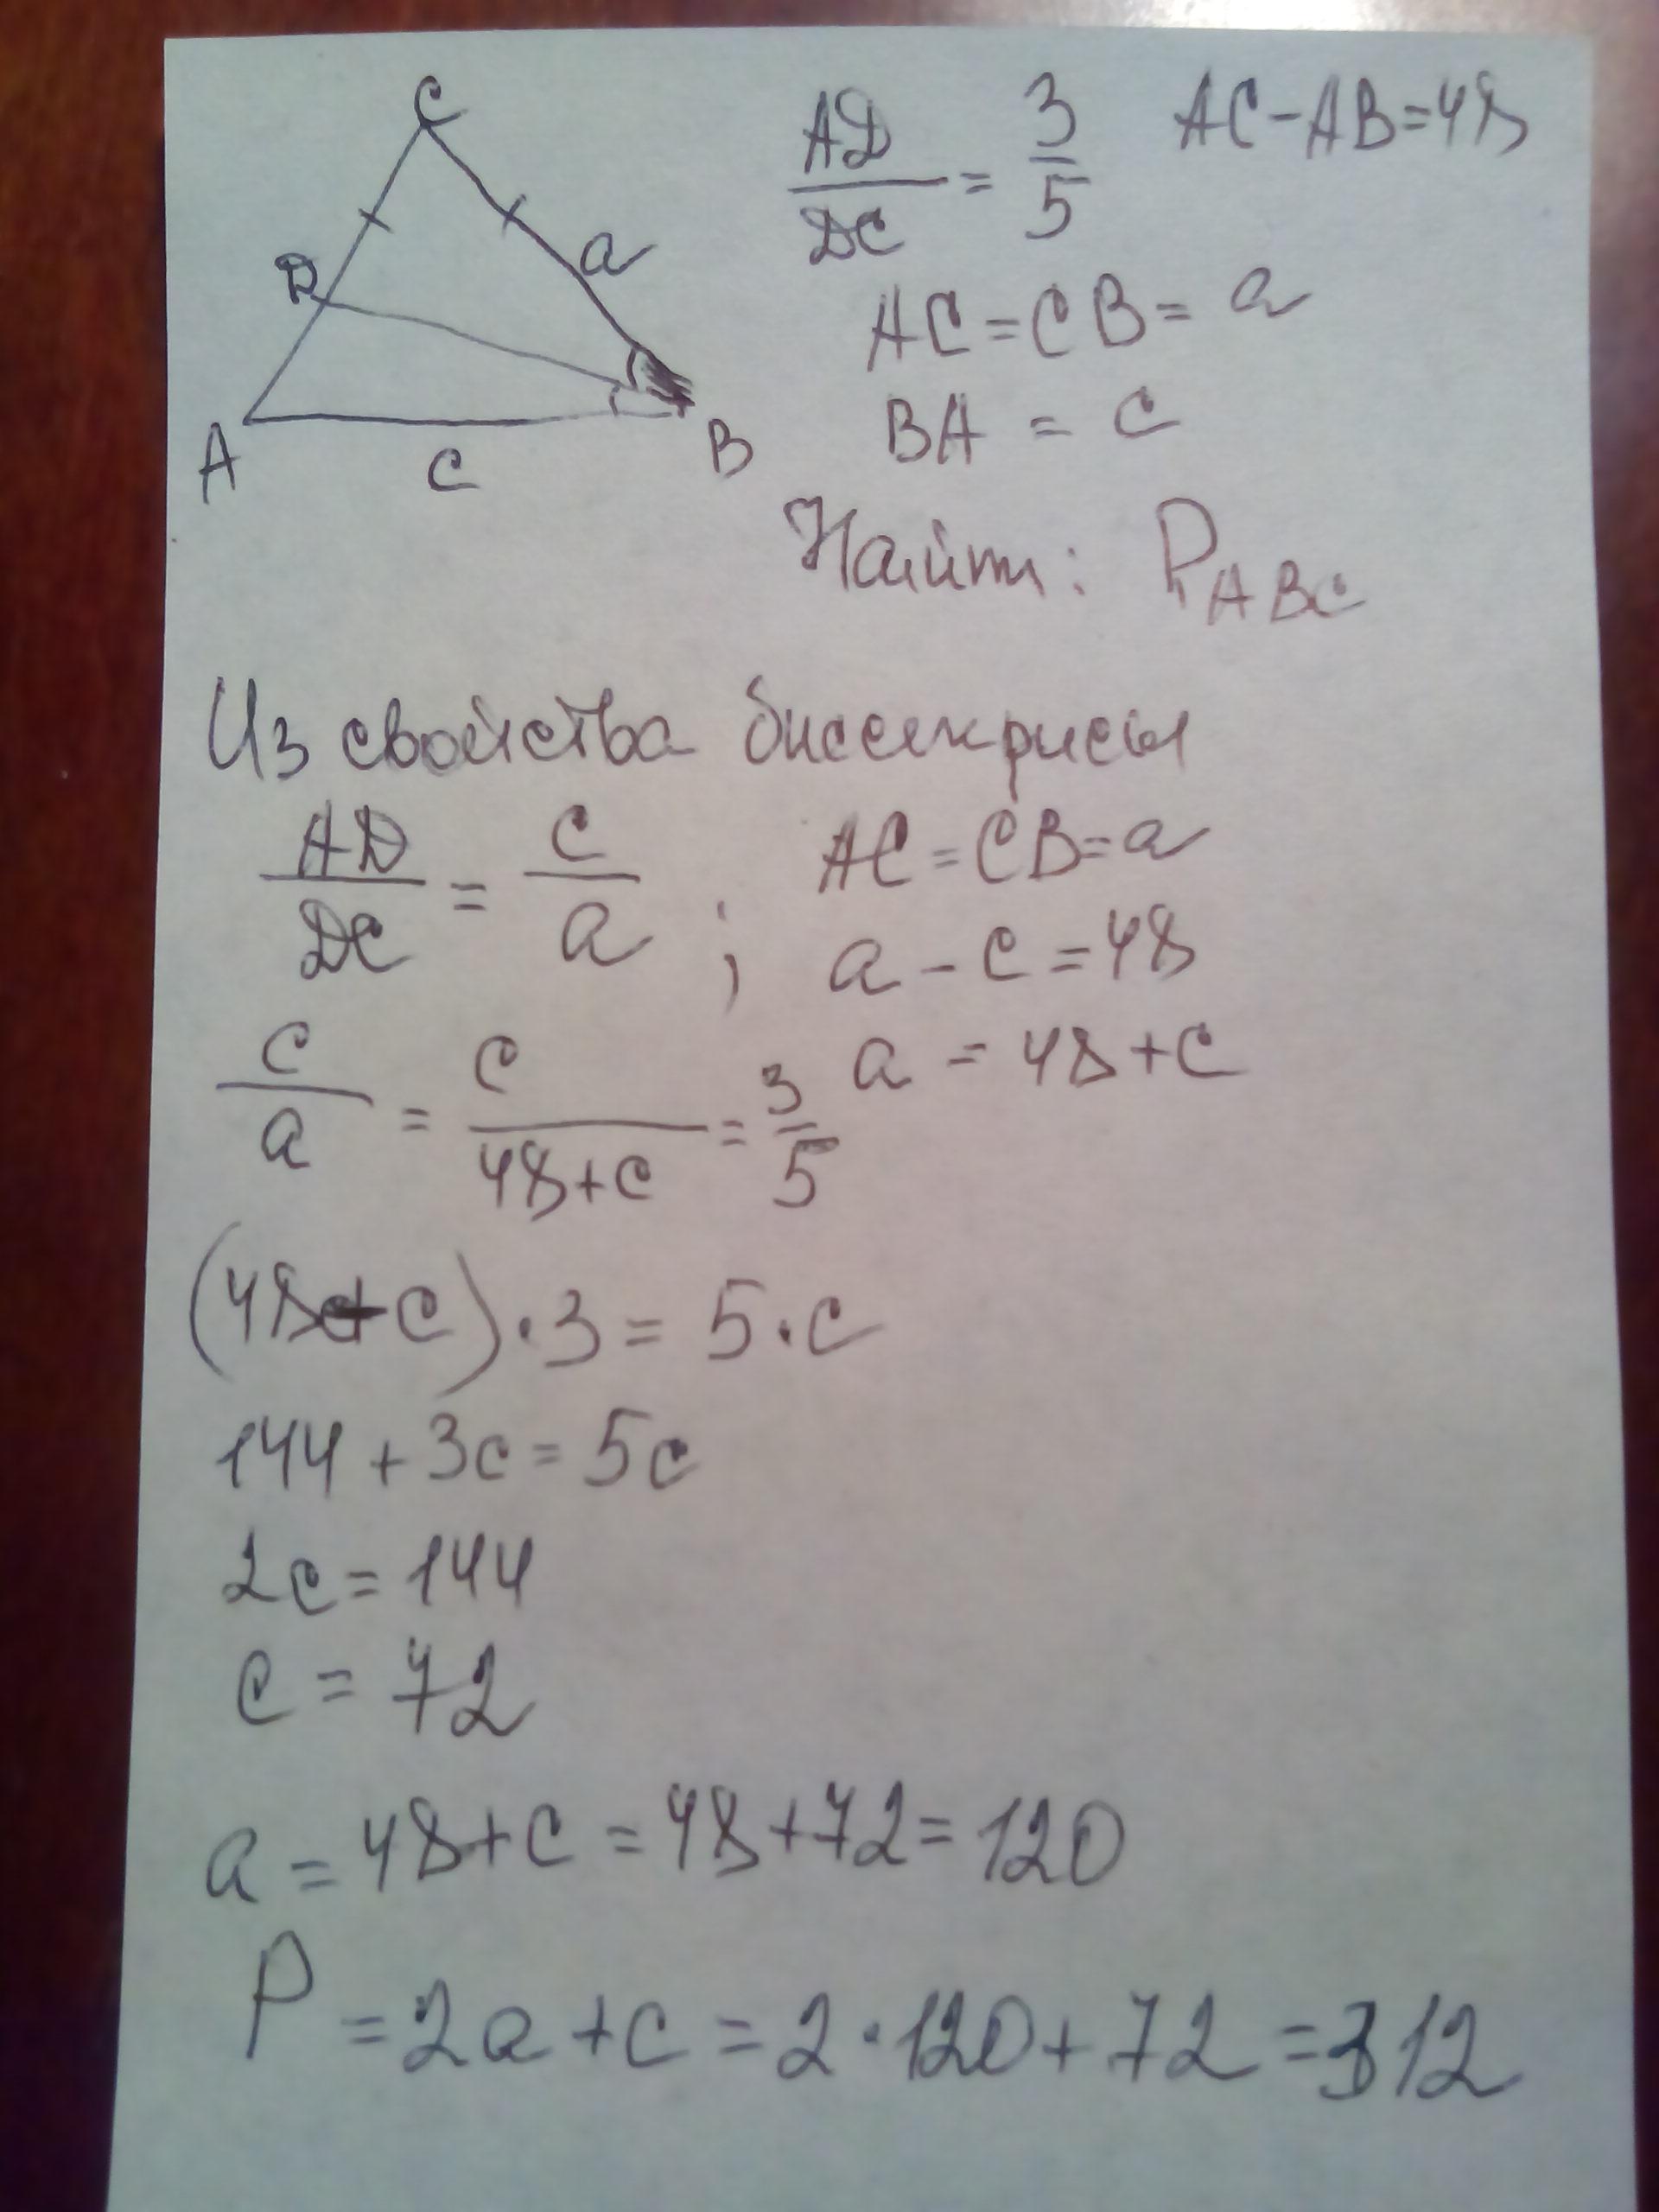 C
D
a
A
c
B
AD/DC = 3/5 AC-AB=48
AC=CB=a
BA = c
Найти: P_ABC
Из свойства биссектрисы
AD/DC = c/a ; AC=CB=a
a-c=48
a = 48+c
c/a = c/(48+c) = 3/5
(48+c)·3=5·c
144+3c=5c
2c=144
c=72
a=48+c=48+72=120
P=2a+c=2·120+72=312